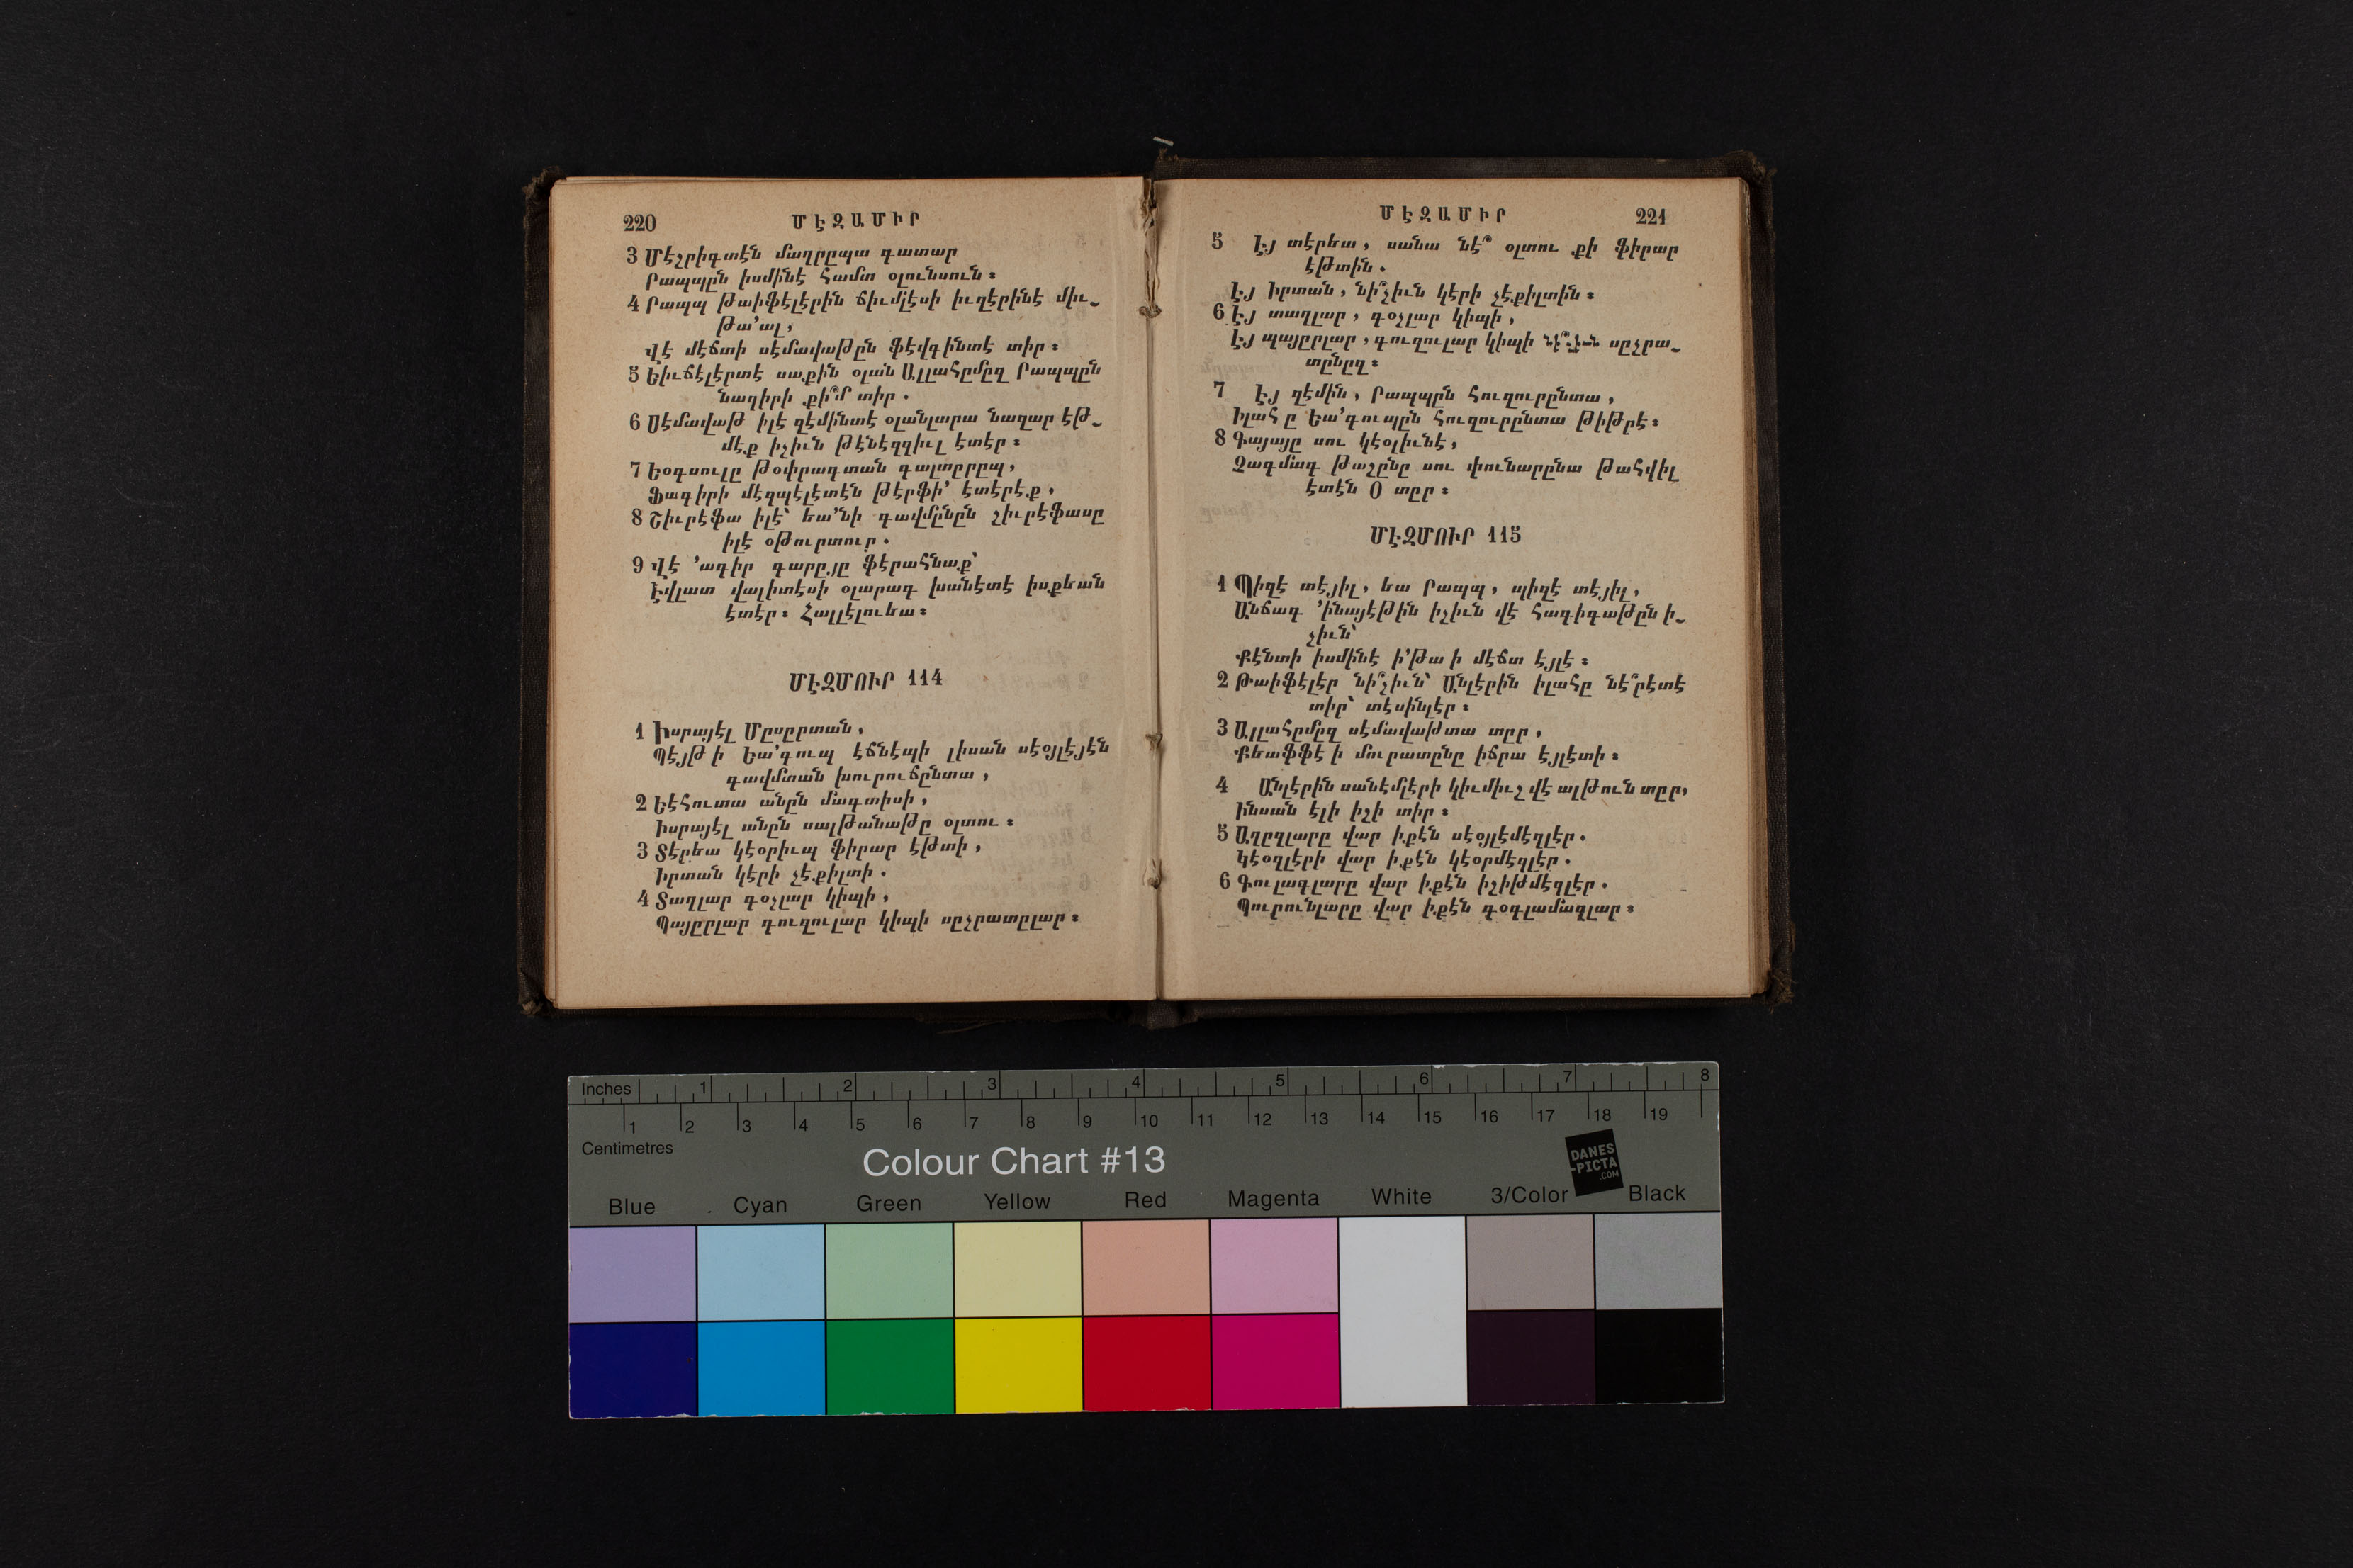 220 ՄԷԶԱՄԻՐ
3 Մէշրիգտէն մաղրըպա գատար
Րապպըն իսմինէ համտ օլունսուն։
4 Րապպ թաիֆէլէրին ճիւմլէսի իւզէրինէ միւ֊
թա՚ալ,
Վէ մէճտի սէմավաթըն ֆէվգինտէ տիր։
5 Եիւճէլէրտէ սաքին օլան Ալլահըմըզ Րապպըն
նազիրի քի՞մ տիր.
6 Սէմավաթ իլէ զէմինտէ օլանլարա նազար էթ֊
մէք իչիւն թէնէզզիւլ էտէր։
7 Եօգսուլը թօփրագտան գալտըրըպ,
Ֆագիրի մէզպէլէտէն թէրֆի՚ էտէրէք,
8 Շիւրէֆա իլէ՝ եա՚նի գավմընըն շիւրէֆասը
իլէ օթուրտուր.
9 Վէ ՚ագիր գարըյը ֆէրահնաք՝
Էվլատ վալիտէսի օլարագ խանէտէ իսքեան
էտէր։ Հալլէլուեա։
ՄԷԶՄՈՒՐ 114
1 Իսրայէլ Մըսըրտան,
Պէյթ ի Եա՚գուպ էճնէպի լիսան սէօյլէյէն
գավմտան խուրուճընտա,
2 Եէհուտա անըն մագտիսի,
Իսրայէլ անըն սալթանաթը օլտու։
3 Տէրեա կէօրիւպ ֆիրար էթտի,
Իրտան կէրի չէքիլտի.
4 Տաղլար գօչլար կիպի,
Պայըրլար գուզուլար կիպի սըչրատըլար։
ՄԷԶԱՄԻՐ 221
5 Էյ տէրեա, սանա նէ՞ օլտու քի ֆիրար
էթտին.
Էյ Իրտան, նի՞չիւն կէրի չէքիլտին։
6 Էյ տաղլար, գօչլար կիպի,
Էյ պայըրլար, գուզուլար կիպի նի՞չիւն սըչրա֊
տընըզ։
7 Էյ զէմին, Րապպըն հուզուրընտա,
Իլահ ը Եա՚գուպըն հուզուրընտա թիթրէ։
8 Գայայը սու կէօլիւնէ,
Չագմագ թաշընը սու փունարընա թահվիլ
էտէն Օ տըր։
ՄԷԶՄՈՒՐ 115
1 Պիզէ տէյիլ, եա Րապպ, պիզէ տէյիլ,
Անճագ ՚ինայէթին իչիւն վէ հագիգաթըն ի֊
չիւն՝
Քէնտի իսմինէ ի՚թա ի մէճտ էյլէ։
2 Թաիֆէլէր նի՞չիւն՝ Անլէրին իլահը նէ՞րէտէ
տիր՝ տէսինլէր։
3 Ալլահըմըզ սէմավաթտա տըր,
Քեաֆֆէ ի մուրատընը իճրա էյլէտի։
4 Անլէրին սանէմլէրի կիւմիւշ վէ ալթուն տըր,
Ինսան էլի իշի տիր։
5 Աղըզլարը վար իքէն սէօյլէմէզլէր.
Կէօզլէրի վար իքէն կէօրմէզլէր.
6 Գուլագլարը վար իքէն իշիթմէզլէր.
Պուրունլարը վար իքէն գօգլամազլար։
Inches 1 2 3 4 5 6 7 8
1 2 3 4 5 6 7 8 9 10 11 12 13 14 15 16 17 18 19
Centimetres
Colour Chart #13
DANES
-PICTA
.COM
Blue Cyan Green Yellow Red Magenta White 3/Color Black